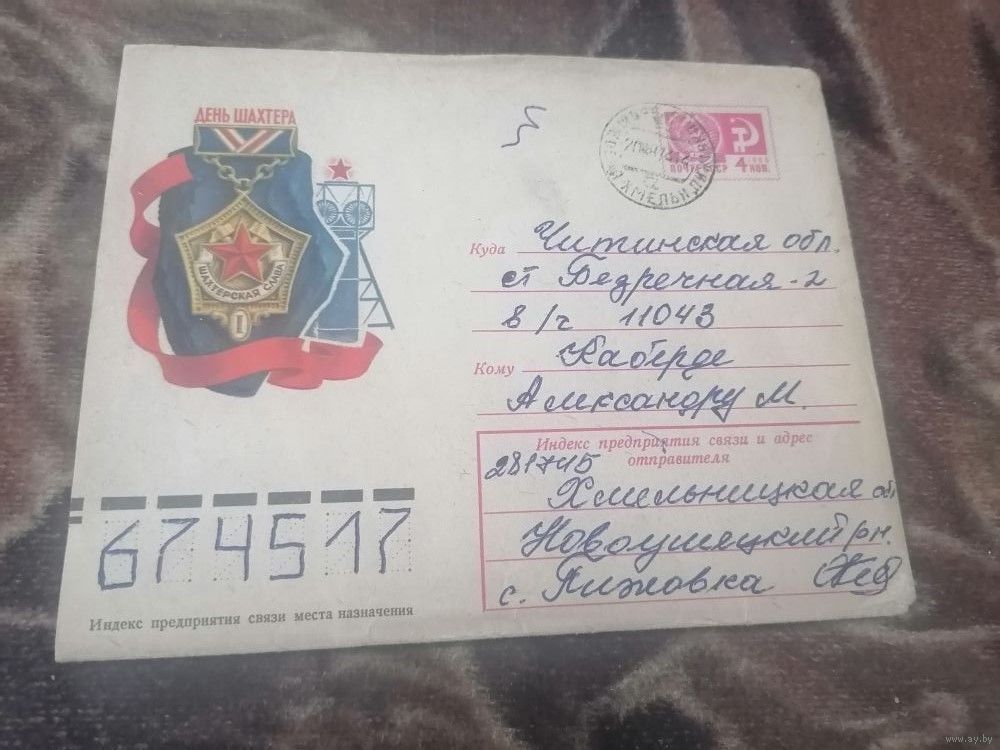 ДЕНЬ ШАХТЕРА
ШАХТЕРСКАЯ СЛАВА
I
ПОЧТА СССР
4 КОП.
1966
Куда Читинская обл.
ст Безречная-2
в/ч 11043
Кому
Александру М.
Индекс предприятия связи и адрес
отправителя
281745
Хмельницкая обл
Новоушицкий рн.
с. Пижовка
674517
Индекс предприятия связи места назначения
www.ay.by